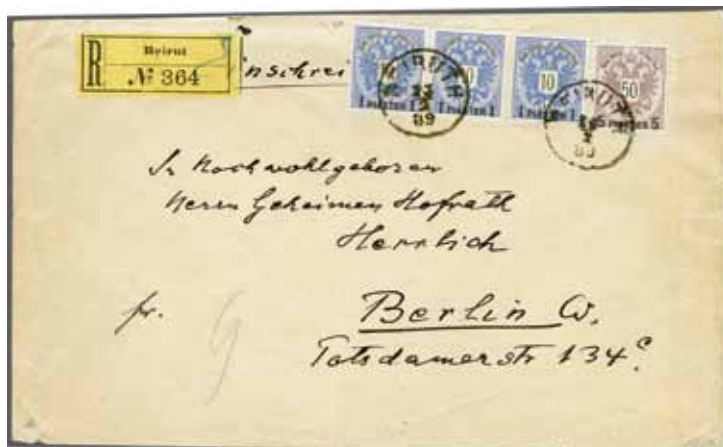 Beirut
R № 364
inschrei
10 10 50
1 PIASTER 1 1 PIASTER 1 1 PIASTER 1 5 PIASTER 5
BEIRUTH
89
Sr Hochwohlgeboren
Herrn Geheimen Hofrath
Herrlich
fr.
Berlin W.
Potsdamerstr 134c.